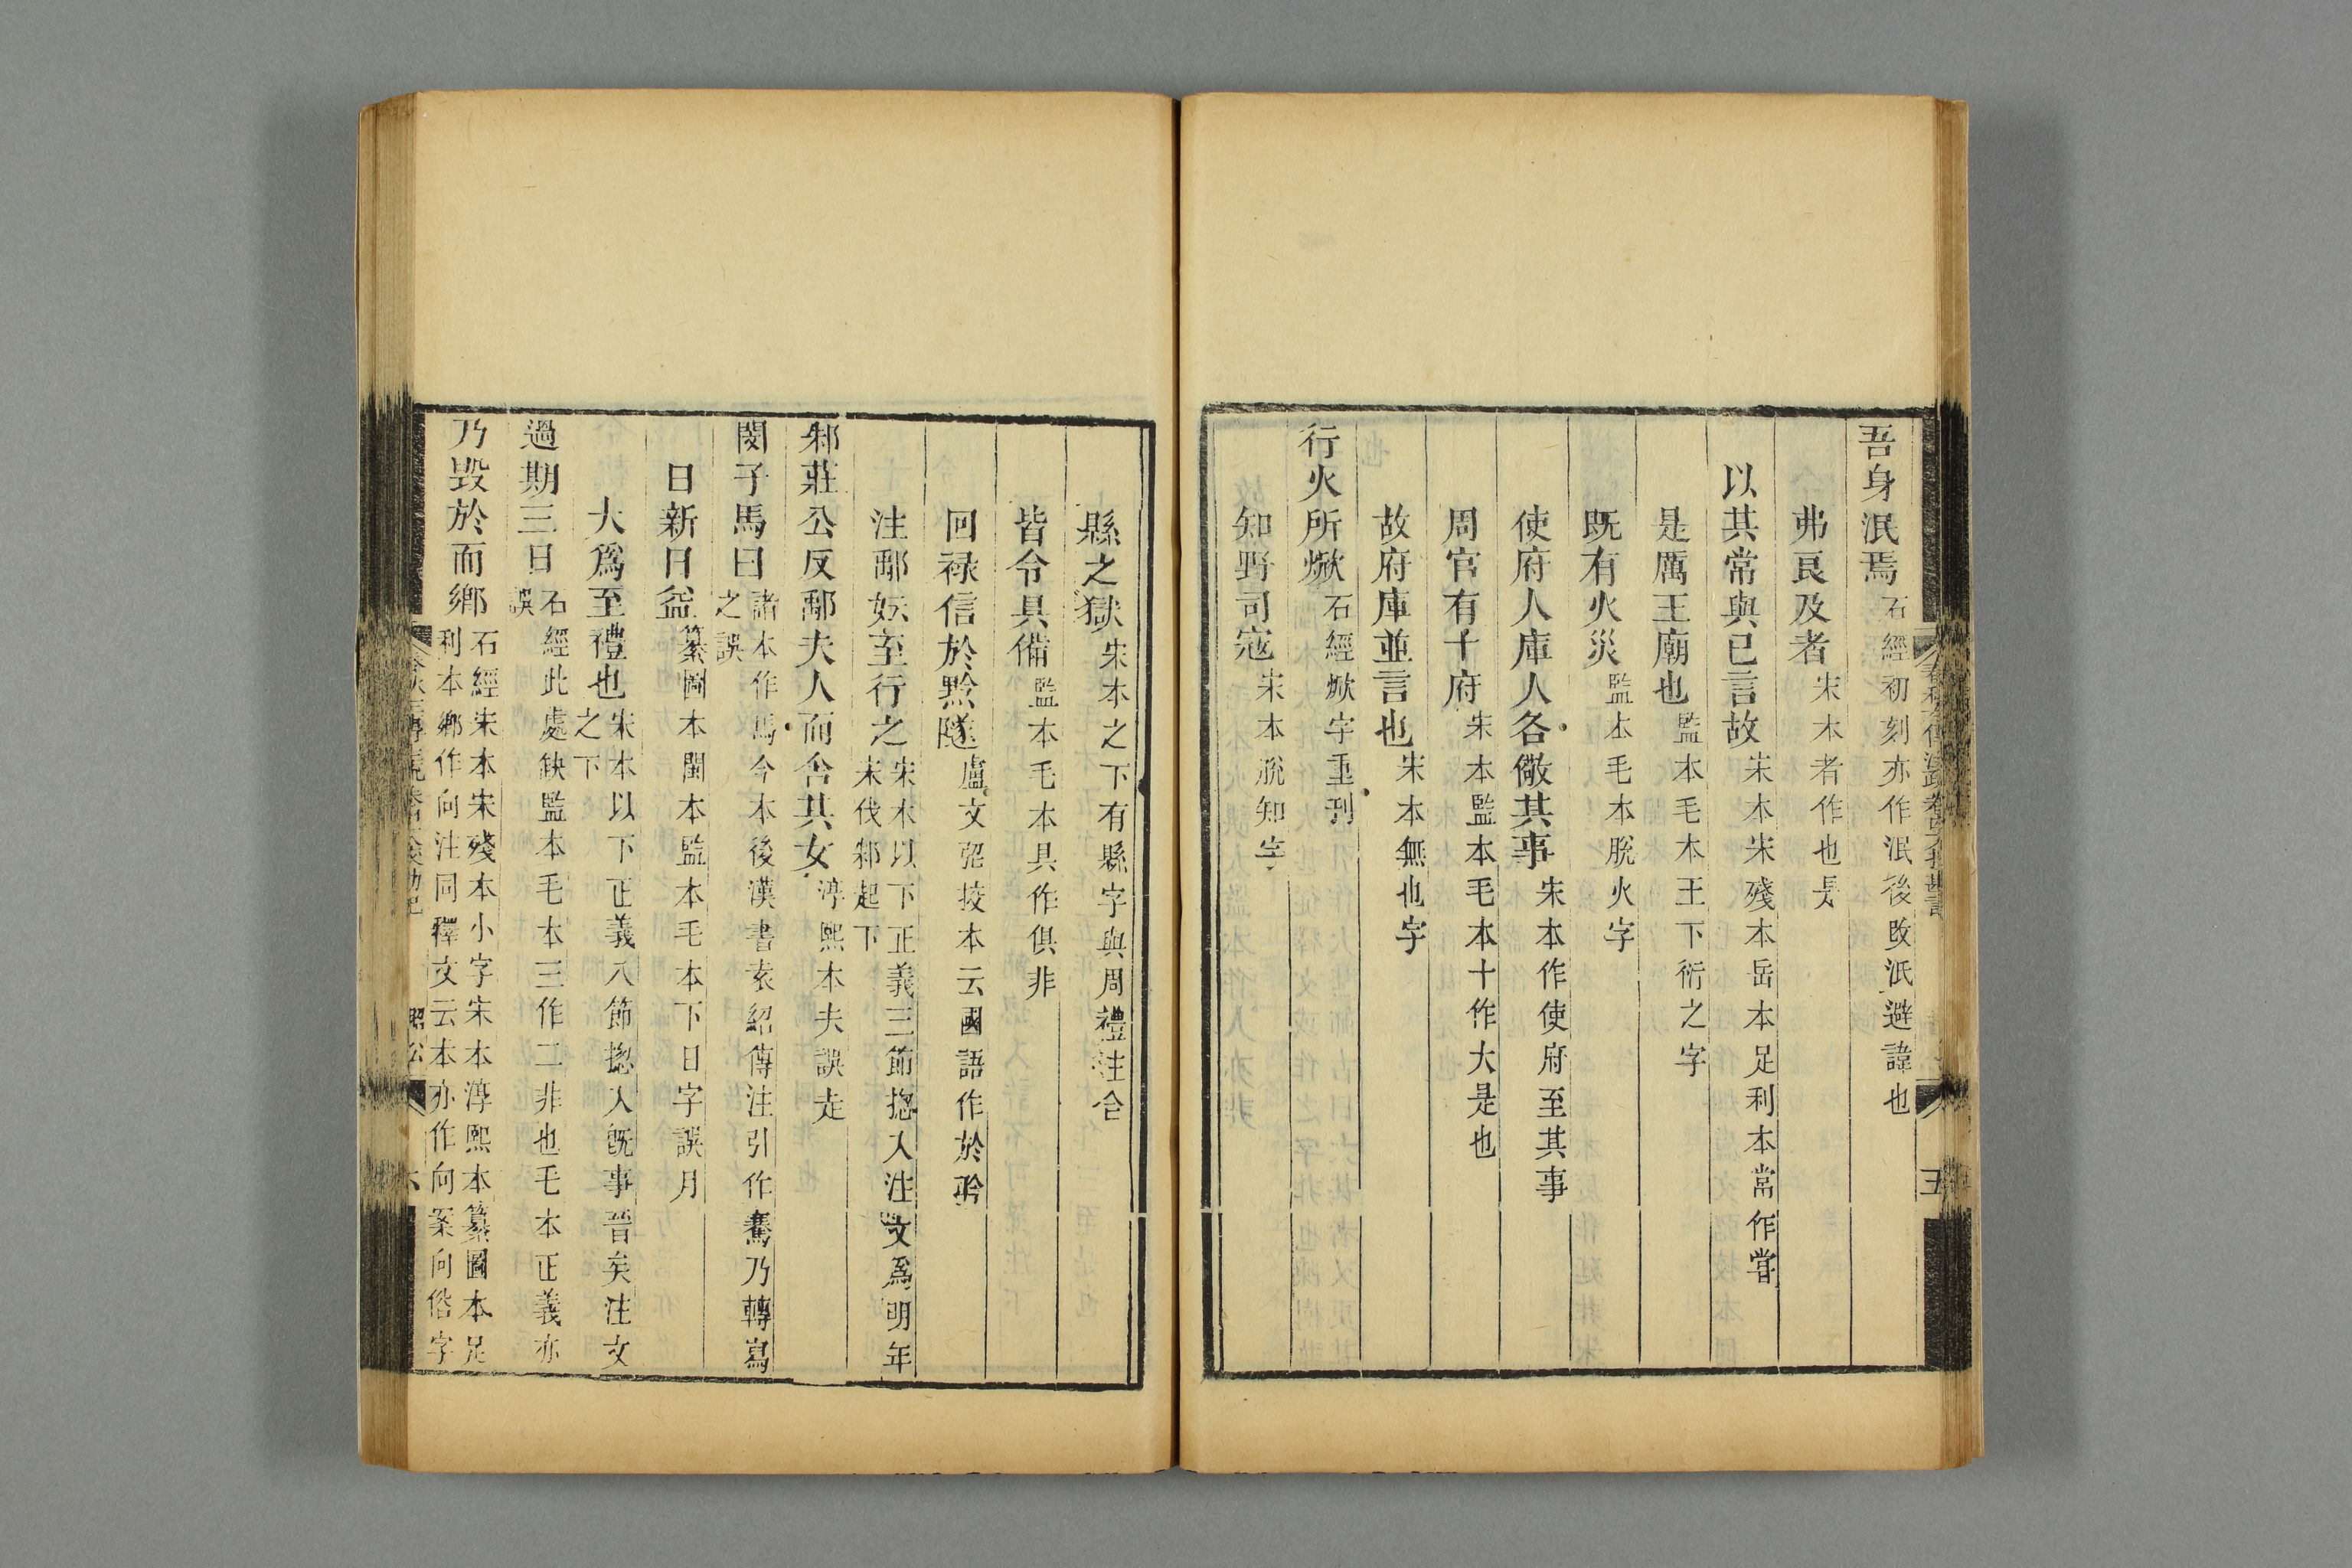 吾身泯焉石經初刻亦作泯後改汦避諱也
弗良及者宋本者作也是
以其常與已言故宋本宋殘本岳本足利本常作嘗
是厲王廟也監本毛本王下衍之字
既有火災監本毛本脫火字
使府人庫人各儆其事宋本作使府至其事
周官有千府宋本監本毛本十作大是也
故府庫並言也宋本無也字
行火所焮石經焮字重刊
知野司寇宋本脫知字
縣之獄宋本之下有縣字與周禮注合
皆令具備監本毛本具作俱非
回祿信於黔隧盧文弨挍本云國語作於聆
注鄅妘至行之宋本以下正義三節揔入注文爲明年
末伐邾起下
邾莊公反鄅夫人而舍其女淳熙本夫誤走
閔子馬曰諸本作馬今本後漢書袁紹傳注引作騫乃轉寫
之誤
日新日益纂圖本閩本監本毛本下日字誤月
大爲至禮也宋本以下正義八節揔入旣事晉矣注文
之下
過期三日石經此處缺監本毛本三作二非也毛本正義亦
誤
乃毀於而鄉石經宋本宋殘本小字宋本淳熙本纂圖本足
利本鄉作向注同釋文云本亦作向案向俗字